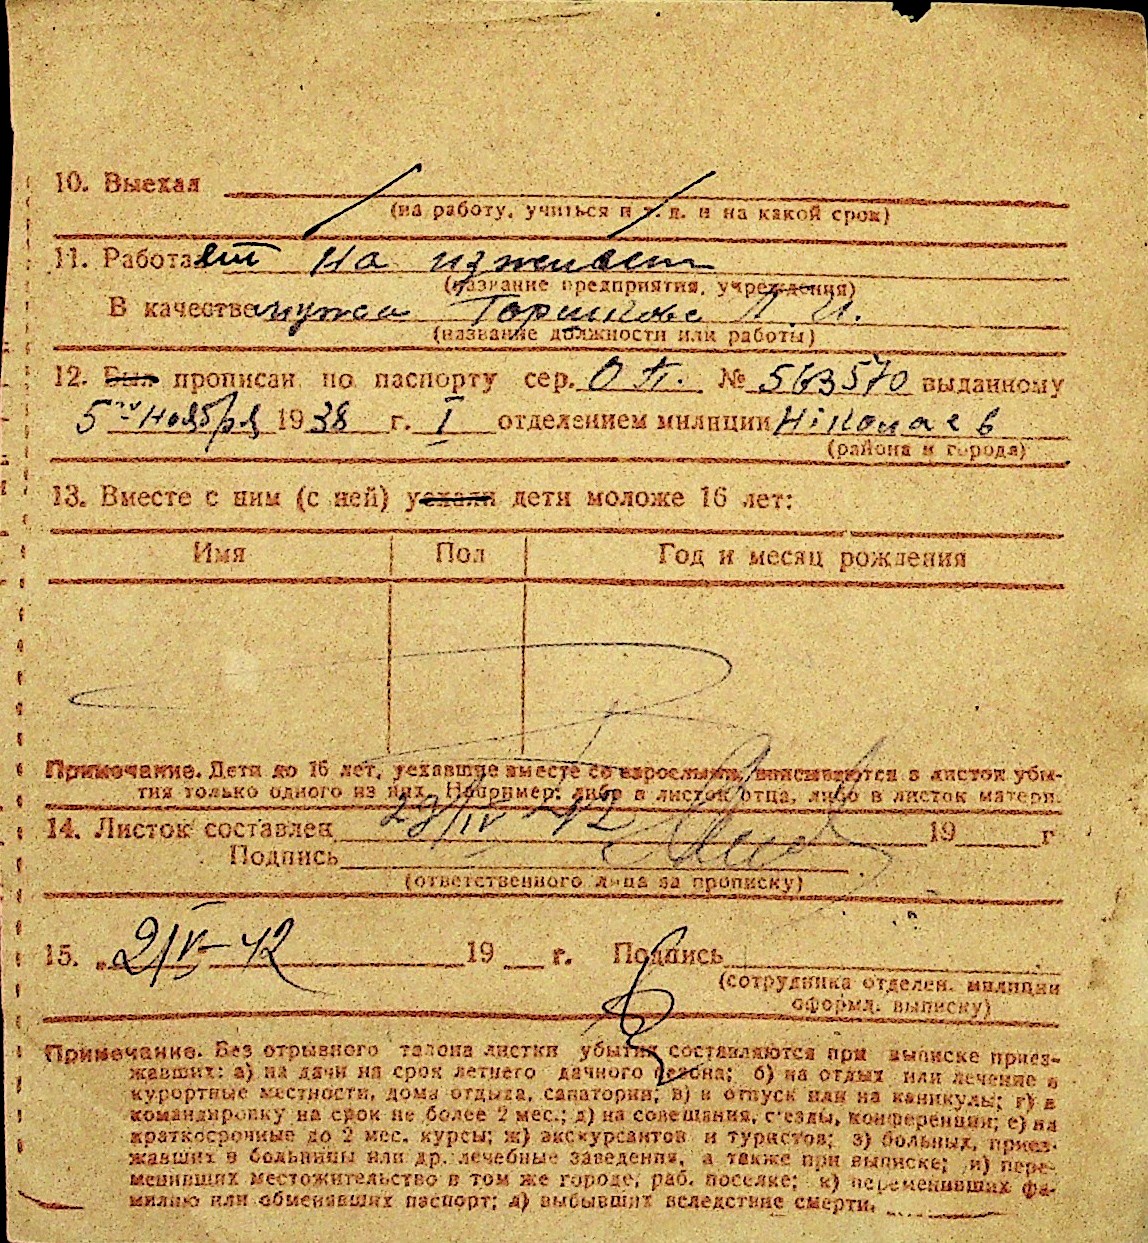 10. Выехал
(на работу, учиться и т. д. и на какой срок)
11. Работает на иждивении
(название предприятия, учреждения)
В качестве мужа Горшкова
(название должности или работы)
12. Был прописан по паспорту сер. ОП. № 563570 выданному
5го ноября 1938 г. I отделением милиции Ніколаев
(района и города)
13. Вместе с ним (с ней) уехали дети моложе 16 лет:
Имя Пол Год и месяц рождения
Примечание. Дети до 16 лет, уехавшие вместе со взрослыми, вписываются в листок убы-
тия только одного из них. Например: либо в листок отца, либо в листок матери.
14. Листок составлен 29/IV-42 19 г
Подпись
(ответственного лица за прописку)
15. „ 2/V-42 19 г. Подпись
(сотрудника отделен. милиции
оформл. выписку)
Примечание. Без отрывного талона листки убытия составляются при выписке приез-
жавших: а) на дачи на срок летнего дачного сезона; б) на отдых или лечение в
курортные местности, дома отдыха, санатории; в) в отпуск или на каникулы; г) в
командировку на срок не более 2 мес.; д) на совещания, с'езды, конференции; е) на
краткосрочные до 2 мес. курсы; ж) экскурсантов и туристов; з) больных, приез-
жавших в больницы или др. лечебные заведения, а также при выписке; и) пере-
менивших местожительство в том же городе, раб. поселке; к) переменивших фа-
милию или обменявших паспорт; л) выбывших вследствие смерти.